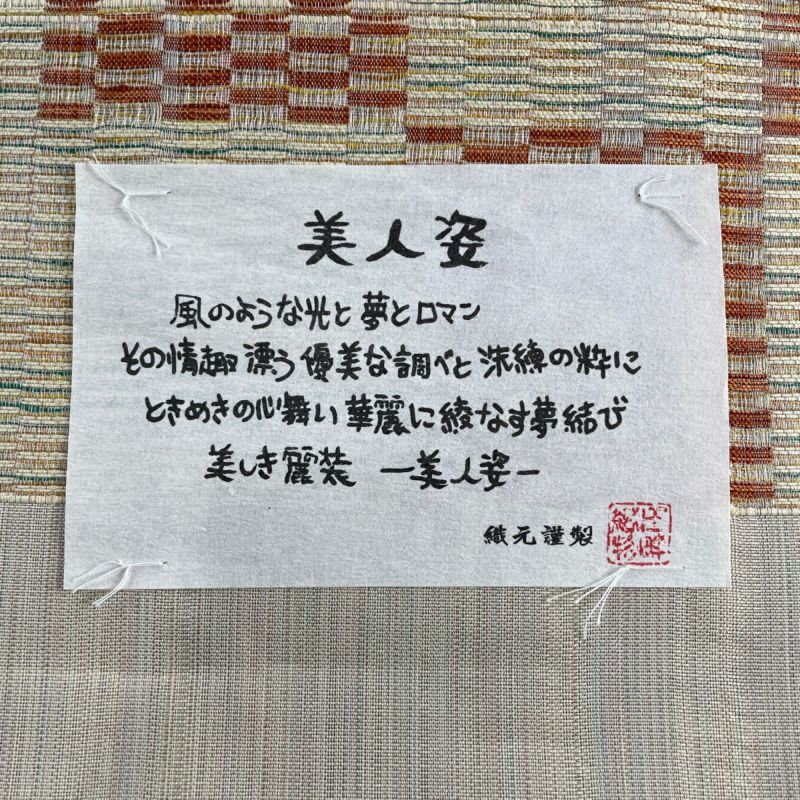 美人姿
風のような光と夢とロマン
その情趣漂う優美な調べと洗練の粋に
ときめきの心舞い華麗に綾なす夢結び
美しき麗装 ー美人姿ー
織元謹製